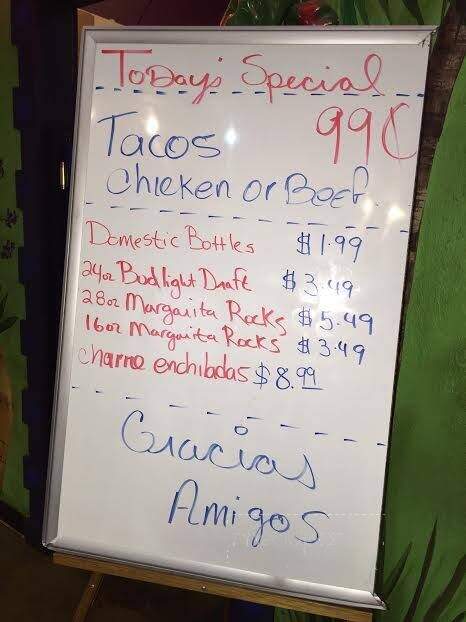 Today's Special
Tacos 99¢
Chicken or Beef.
Domestic Bottles $1.99
24oz Budlight Draft $3.49
28oz Margarita Rocks $5.49
16oz Margarita Rocks $3.49
charro enchiladas $8.99
Gracias
Amigos